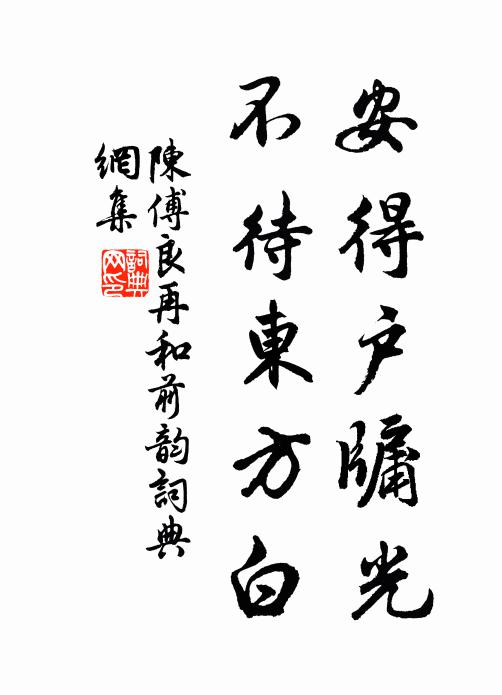 安得戶牖光
不待東方白
陳傅良再和前韵詞典
網集
詞典網印